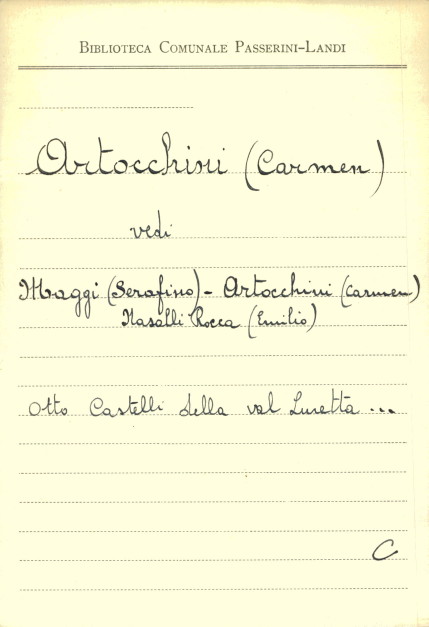 BIBLIOTECA COMUNALE PASSERINI-LANDI
Artocchini (Carmen)
vedi
Maggi (Serafino) - Artocchini (Carmen)
Nasalli Rocca (Emilio)
Otto Castelli della val Luretta ...
C